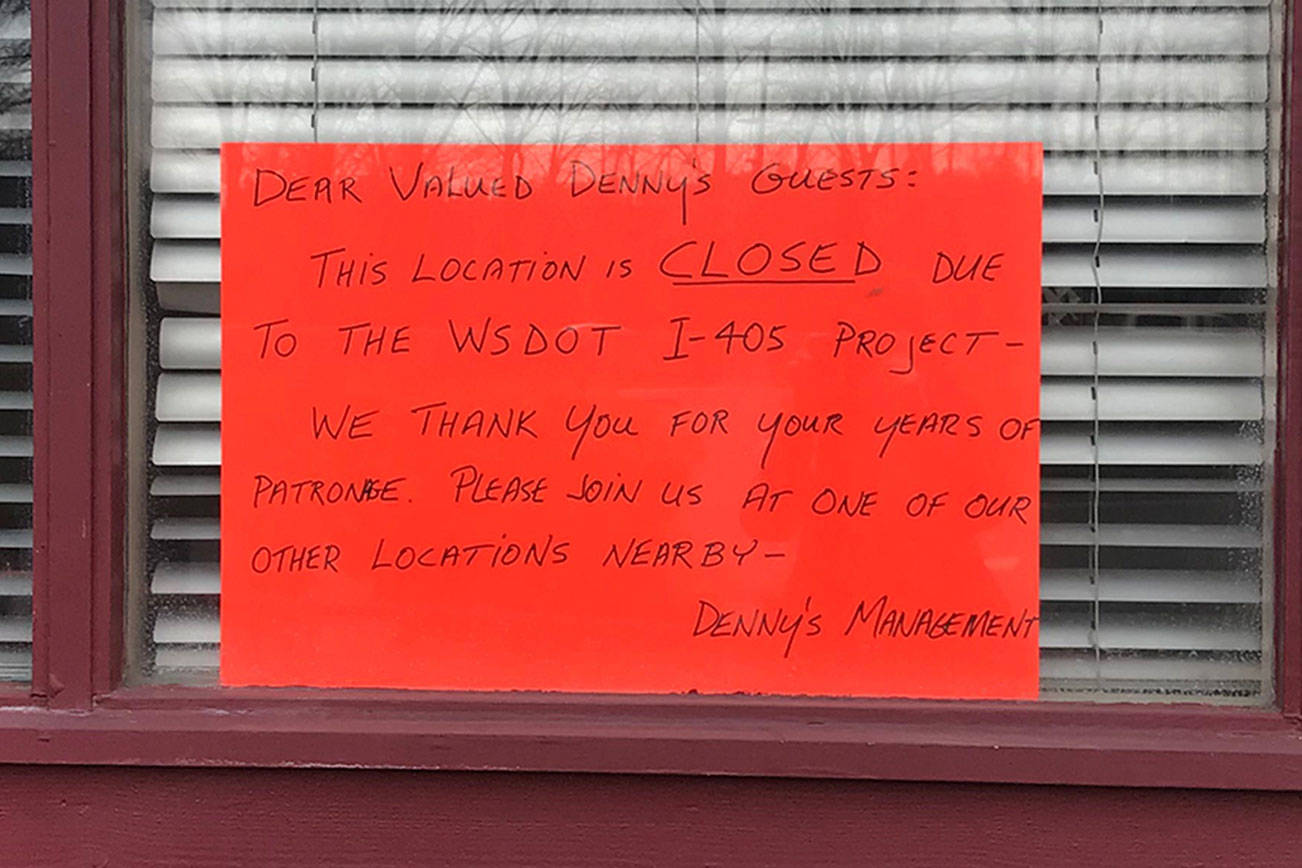 DEAR VALUED DENNY'S GUESTS:
THIS LOCATION IS CLOSED DUE
TO THE WSDOT I-405 PROJECT-
WE THANK YOU FOR YOUR YEARS OF
PATRONAGE. PLEASE JOIN US AT ONE OF OUR
OTHER LOCATIONS NEARBY-
DENNY'S MANAGEMENT